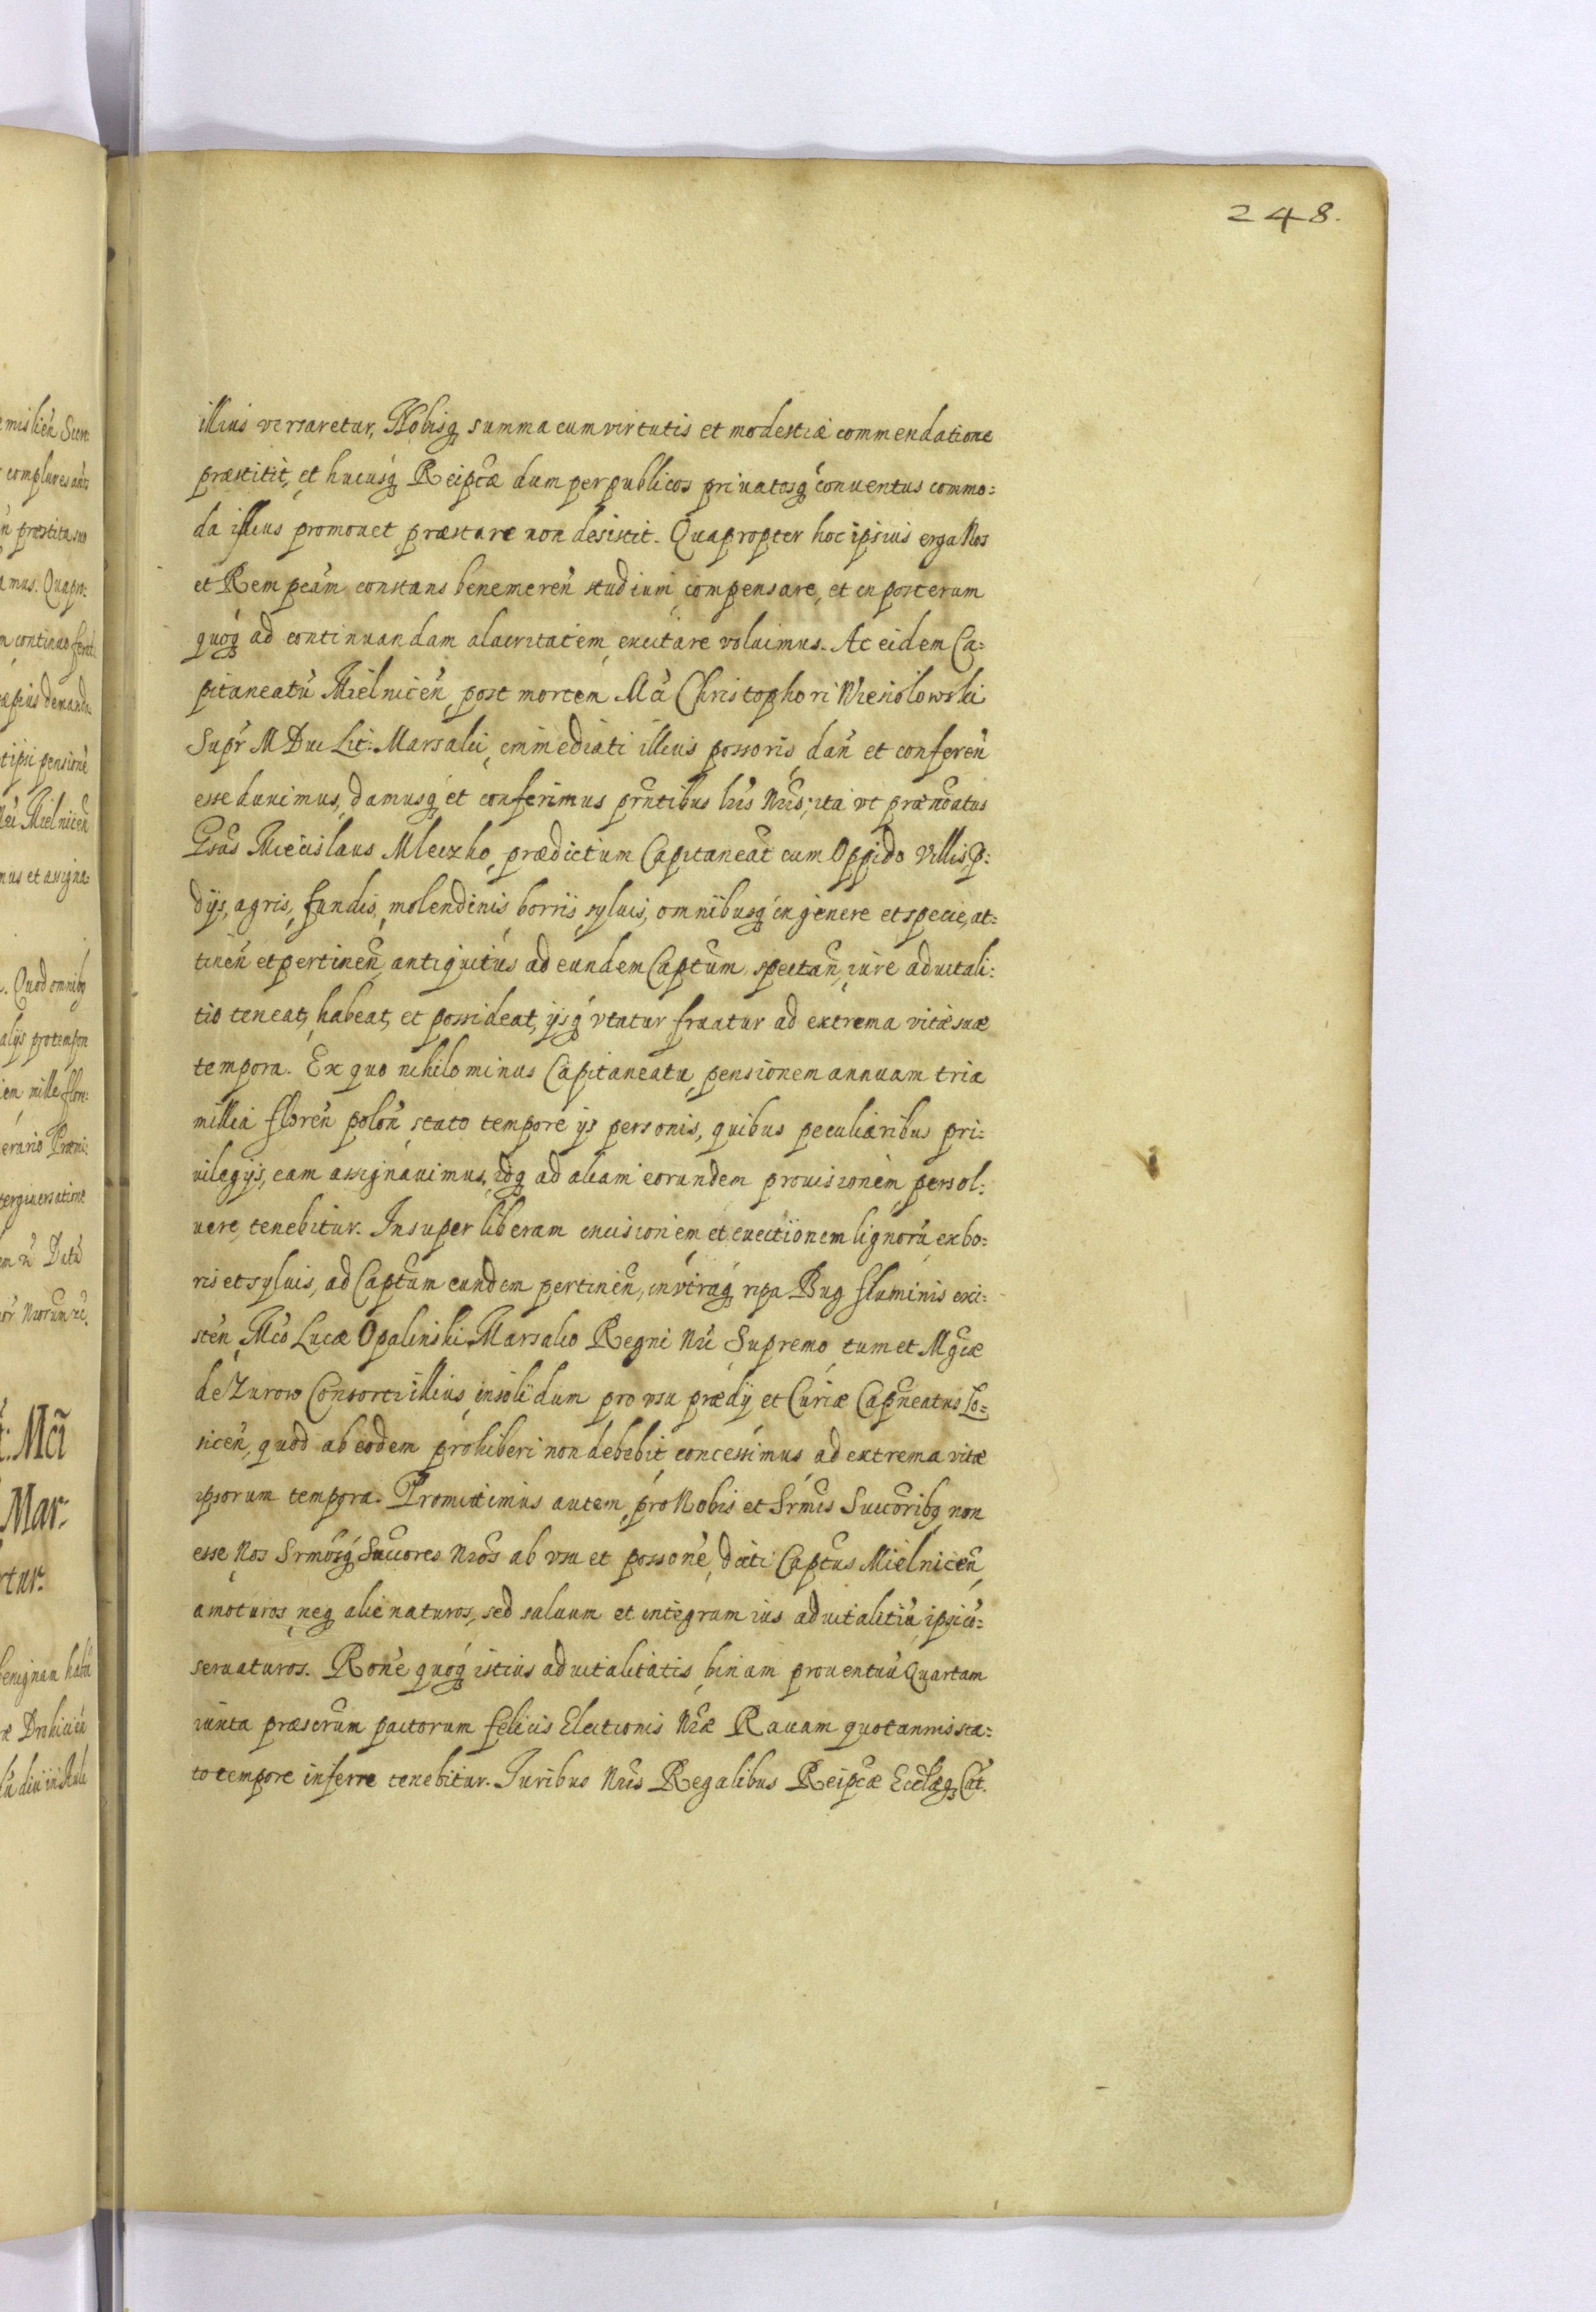 248.
illius versaretur, Nobisq́ summa cum virtutis et modestiæ commendatione
præstitit, et hucusq́ Reipcæ dum per publicos priuatosq́ conuentus commo:
da illius promouet præstare non desistit. Quapropter hoc ipsius erga Nos
et Rempcãm constans benemereñ studium compensare, et in posterum
quoq́ ad continuandam alacritatem excitare voluimus. Ac eidem Ca:
pitaneatũ Mielniceñ post mortem Mci Christophori Wiesiolowski
Supr M Duc Lit: Marsalci immediati illius possoris dañ et confereñ
esse duximus, damusq́ et conferimus prñtibus lris Nris; ita vt prænõatus
Gsus Miecislaus Mleczko prædictum Capitaneat̃ cum Oppido Villis, P:
dijs, agris, fundis, molendinis, borris, syluis, omnibusq́ in genere et specie, at:
tineñ et pertineñ antiquitus ad eundem Captũm spectañ iure aduitali:
tio teneat, habeat, et possideat, ijsq́ vtatur fruatur ad extrema vitæ suæ
tempora. Ex quo nihilominus Capitaneatu pensionem annuam tria
millia floreñ poloñ stato tempore ijs personis, quibus peculiaribus pri:
uilegijs, eam assignauimus, idq́ ad aliam eorundem prouisionem persol:
uere tenebitur. Insuper liberam excisionem et euectionem lignorũ ex bo:
ris et syluis, ad Captũm eundem pertineñ, in vtraq́ ripa Bug fluminis exi:
steñ Mco Lucæ Opalinski Marsalco Regni Nri Supremo tum et Mgcæ
de Zurow Consorti illius insolidum pro vsu prædij et Curiæ Capneatus Lo:
siceñ, quod ab eodem prohiberi non debebit concessimus ad extrema vitæ
ipsorum tempora. Promittimus autem pro Nobis et Srmis Succoribq́ non
esse Nos Srmosq́ Succores Nros ab vsu et possone dicti Captus Mielniceñ
amoturos neq́ alienaturos, sed saluum et integrum ius aduitalitiũ ipsi cõ:
seruaturos. Rone quoq́ istius aduitalitatis binam prouentuũ Quartam
iuxta præscrum pactorum felicis Electionis Nræ Rauam quotannis sta:
to tempore inferre tenebitur. Iuribus Nris Regalibus Reipcæ Ecclæq́ Cat.